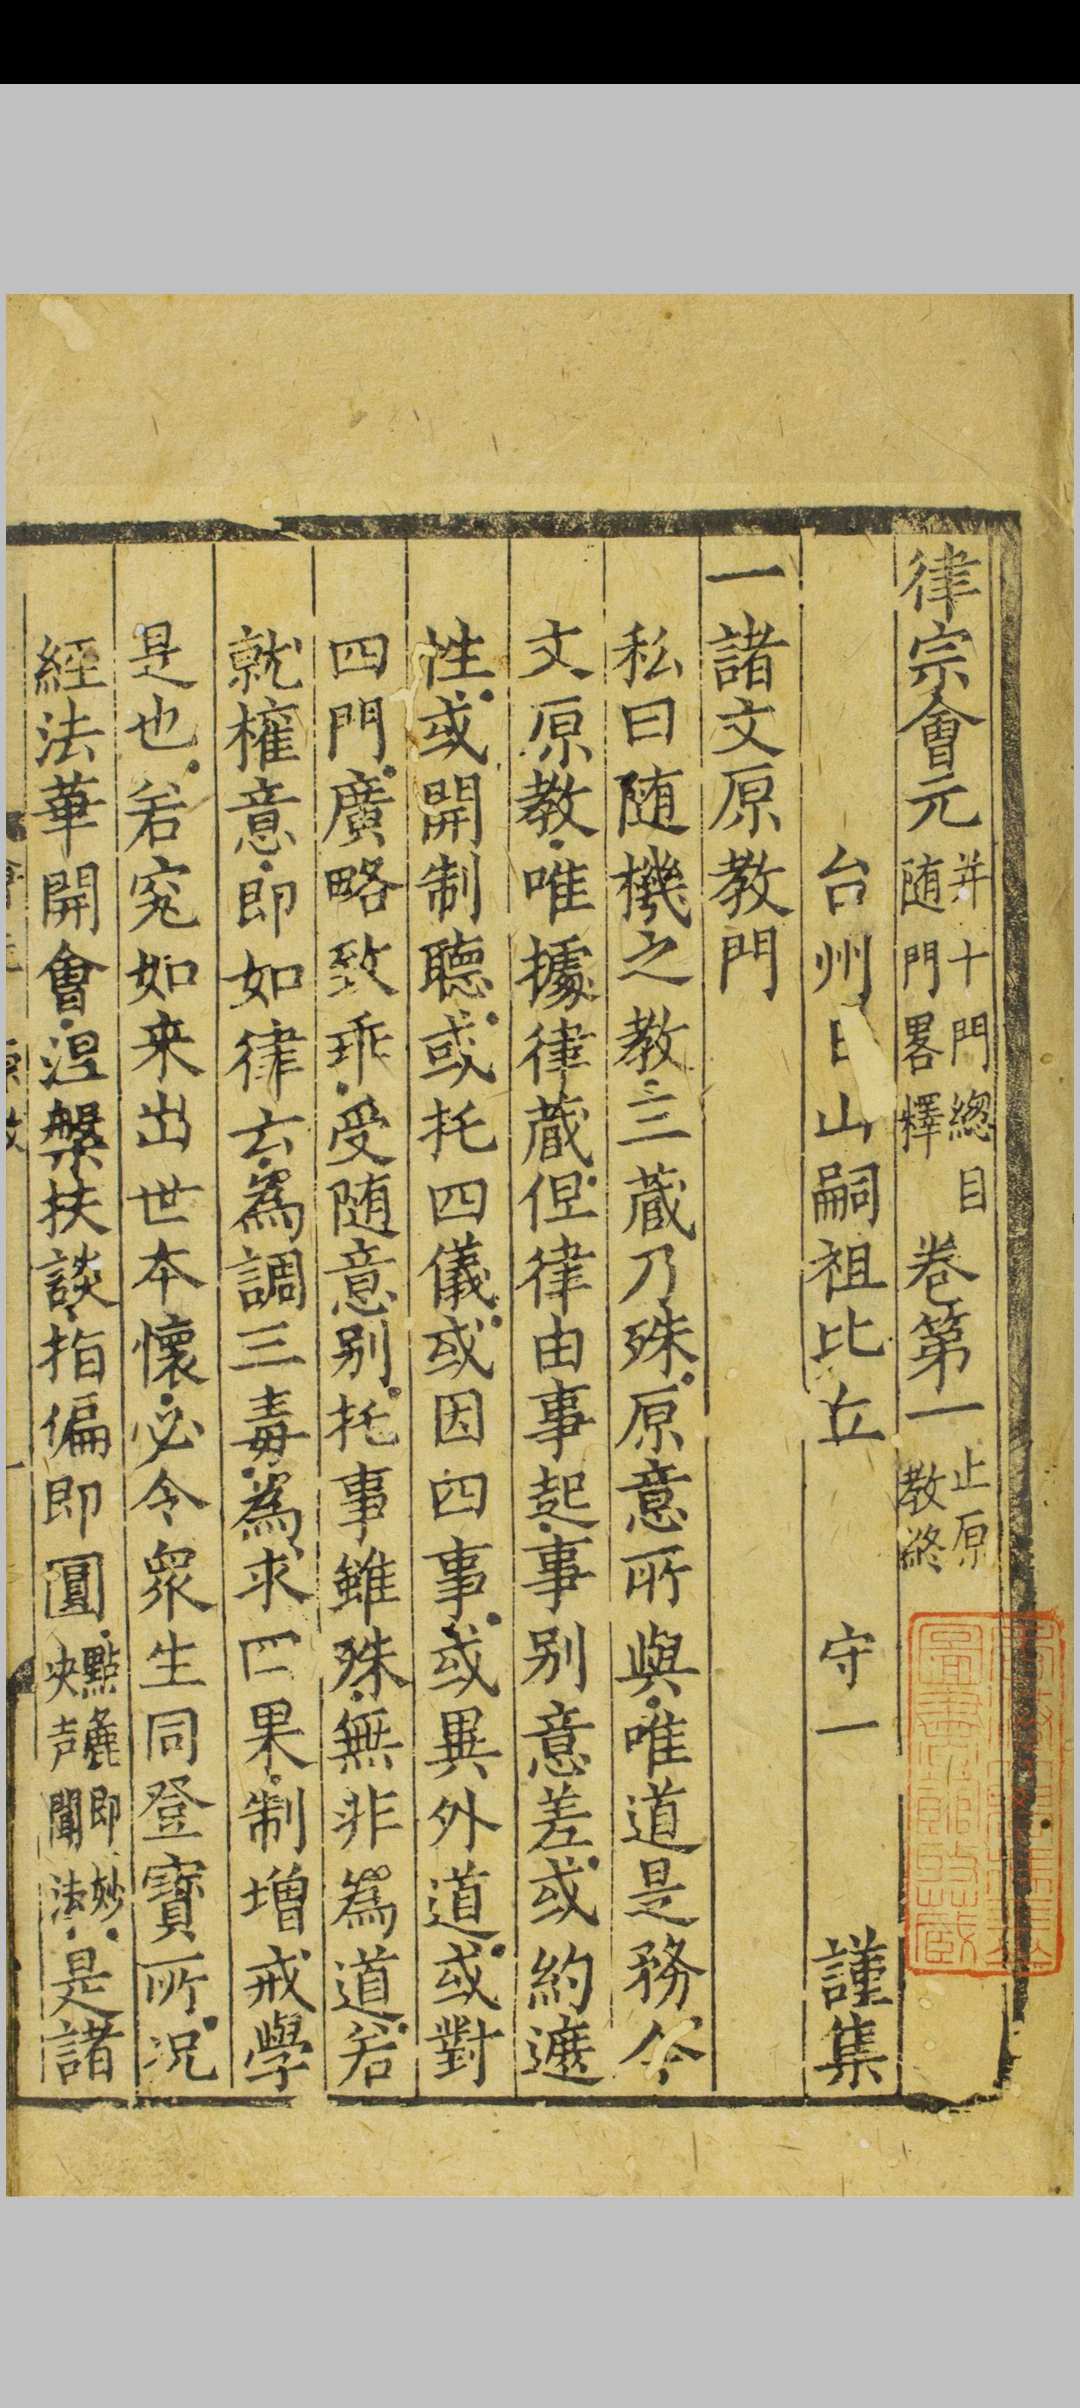 律宗會元并十門總目随門畧釋卷第一止原教終
台州日山嗣祖比丘守一謹集
一諸文原教門
私曰随機之教三藏乃殊原意所與唯道是務今
文原教唯據律藏但律由事起事別意差或約遮
性或開制聽或托四儀或因四事或異外道或對
四門廣略致乖受随意别托事雖殊無非為道若
就權意即如律云為調三毒為求四果制增戒學
是也若究如来出世本懷必令衆生同登寶所况
經法華開會涅槃扶談指偏即圓點麁即妙央声聞法是諸